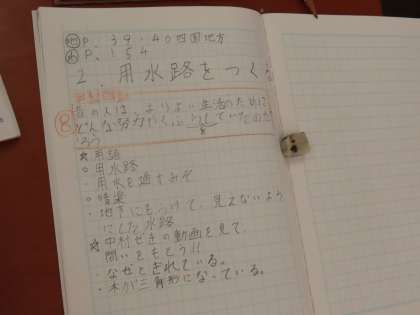 地P.39.40四国地方
P.154
2.用水路をつくる
学習問題
⑧昔の人は、よりよい生活のために
どんな努力やくふうをしていたのだ
ろう
☆用語
○用水路
・用水を通すみぞ
○暗渠
・地下にもうけて、見えないよう
にした水路
☆中村ぜきの動画を見て
問いをもとう!!
・なぜとぎれている。
・木が三角形になっている。